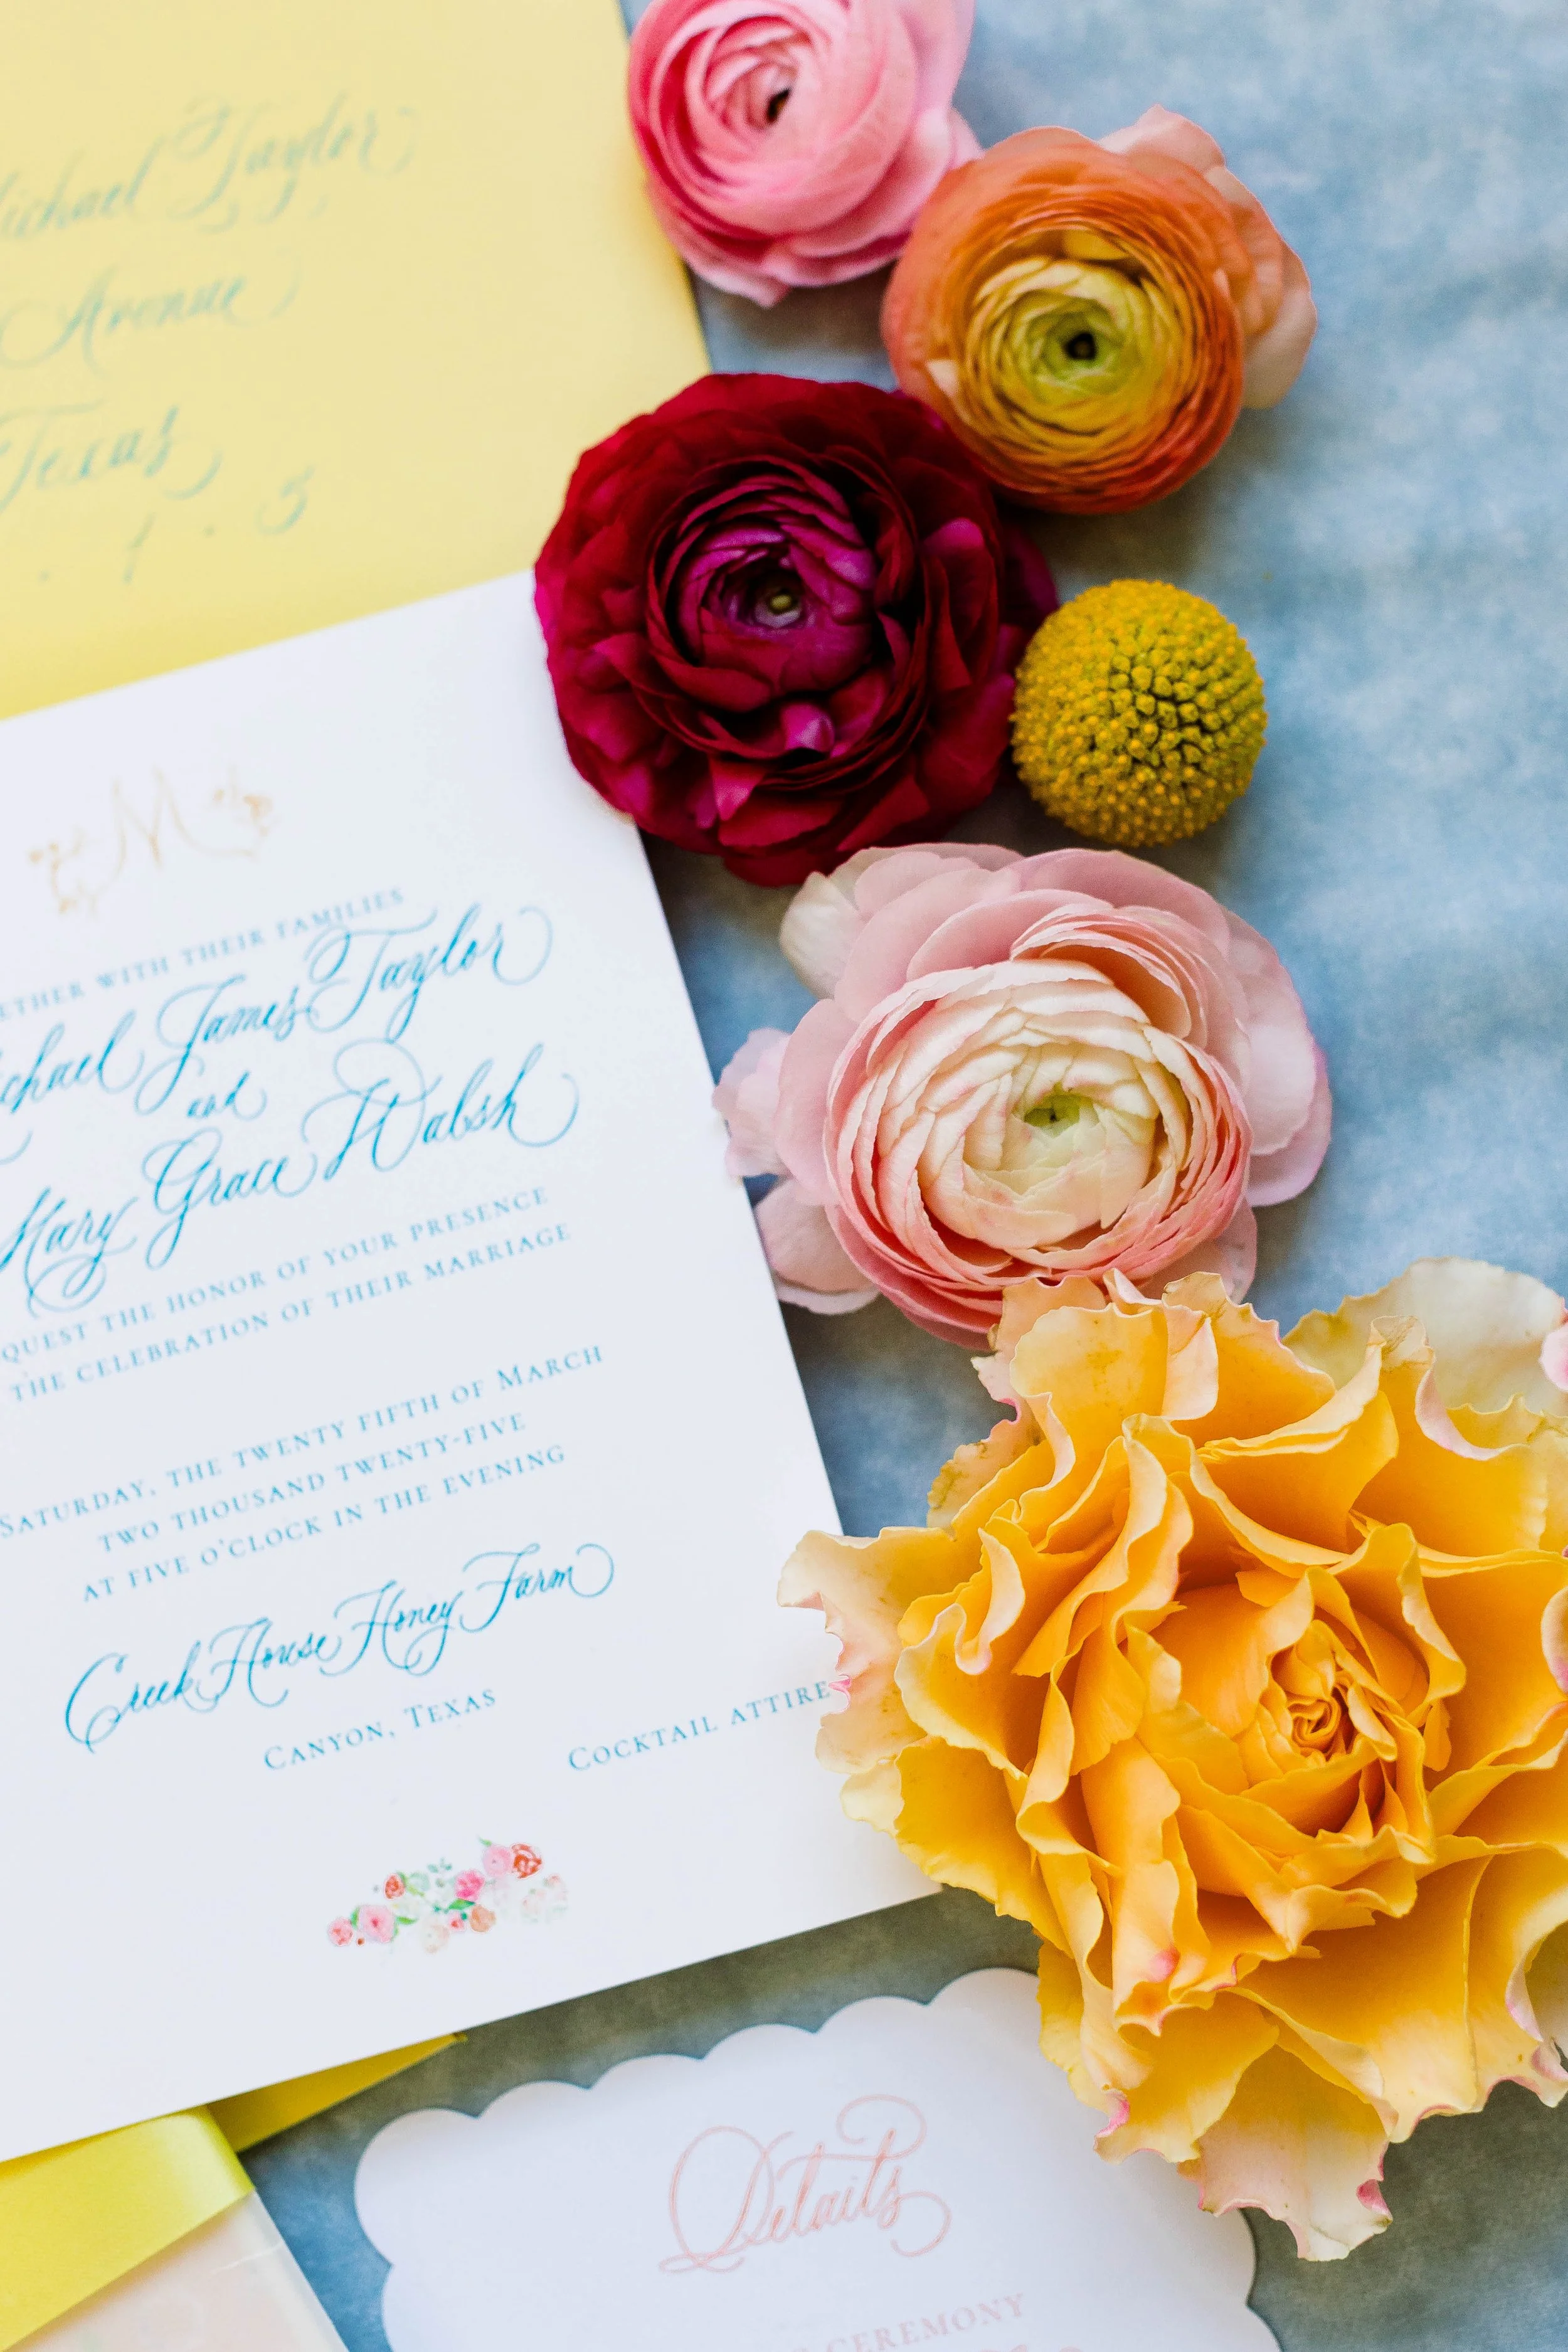 ichael Taylor
Avenue
Texas
M
ETHER WITH THEIR FAMILIES
ichael James Taylor
and
Mary Grace Walsh
QUEST THE HONOR OF YOUR PRESENCE
THE CELEBRATION OF THEIR MARRIAGE
SATURDAY, THE TWENTY FIFTH OF MARCH
TWO THOUSAND TWENTY-FIVE
AT FIVE O'CLOCK IN THE EVENING
Creek House Honey Farm
CANYON, TEXAS
COCKTAIL ATTIRE
Details
CEREMONY